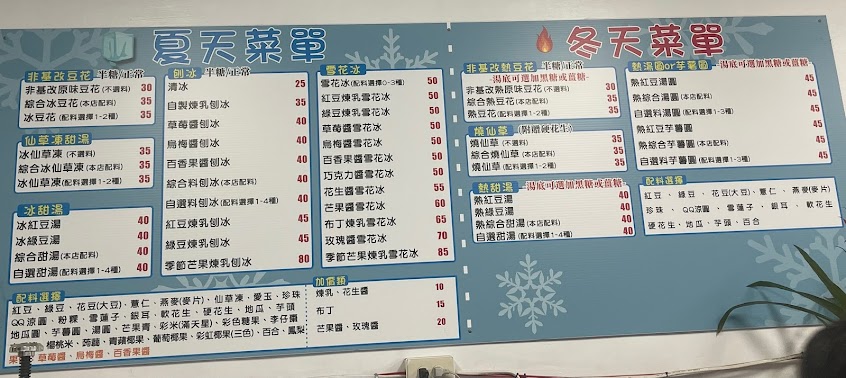 夏天菜單
非基改豆花 半糖/正常
非基改原味豆花(不選料) 30
綜合冰豆花(本店配料) 35
冰豆花(配料選擇1-2種) 35
仙草凍甜湯
冰仙草凍(不選料) 35
綜合冰仙草凍(本店配料) 35
冰仙草凍(配料選擇1-2種) 35
冰甜湯
冰紅豆湯 40
冰綠豆湯 40
綜合甜湯(本店配料) 40
自選甜湯(配料選擇1-4種) 40
刨冰 半糖/正常
清冰 25
自製煉乳刨冰 35
草莓醬刨冰 40
烏梅醬刨冰 40
百香果醬刨冰 40
綜合料刨冰(本店配料) 40
自選料刨冰(配料選擇1-4種) 40
紅豆煉乳刨冰 45
綠豆煉乳刨冰 45
季節芒果煉乳刨冰 80
雪花冰
雪花冰(配料選擇0-3種) 50
紅豆煉乳雪花冰 50
綠豆煉乳雪花冰 50
草莓醬雪花冰 50
烏梅醬雪花冰 50
百香果醬雪花冰 50
巧克力醬雪花冰 50
花生醬雪花冰 55
芒果醬雪花冰 60
布丁煉乳雪花冰 65
玫瑰醬雪花冰 70
季節芒果煉乳雪花冰 85
配料選擇
紅豆、綠豆、花豆(大豆)、薏仁、燕麥(麥片)、仙草凍、愛玉、珍珠
QQ涼圓、粉粿、雪蓮子、銀耳、軟花生、硬花生、地瓜、芋頭
地瓜圓、芋薯圓、湯圓、芒果青、彩米(滿天星)、彩色糖果、李仔鹹
楊桃米、蒟蒻、青蘋椰果、葡萄椰果、彩虹椰果(三色)、百合、鳳梨
草莓醬、烏梅醬、百香果醬
加價類
煉乳、花生醬 10
布丁 15
芒果醬、玫瑰醬 20
冬天菜單
非基改熱豆花 半糖/正常
-湯底可選加黑糖或薑糖-
非基改熱原味豆花(不選料) 30
綜合熱豆花(本店配料) 35
熱豆花(配料選擇1-2種) 35
燒仙草 (附贈硬花生)
燒仙草(不選料) 35
綜合燒仙草(本店配料) 35
燒仙草(配料選擇1-2種) 35
熱甜湯 -湯底可選加黑糖或薑糖-
熱紅豆湯 40
熱綠豆湯 40
綜合甜湯(本店配料) 40
自選甜湯(配料選擇1-4種) 40
熱湯圓or芋薯圓 -湯底可選加黑糖或薑糖-
熱紅豆湯圓 45
熱綜合湯圓(本店配料) 45
自選料湯圓(配料選擇1-3種) 45
熱紅豆芋薯圓 45
熱綜合芋薯圓(本店配料) 45
自選料芋薯圓(配料選擇1-3種) 45
配料選擇
紅豆、綠豆、花豆(大豆)、薏仁、燕麥(麥片)
珍珠、QQ涼圓、雪蓮子、銀耳、軟花生
硬花生、地瓜、芋頭、百合